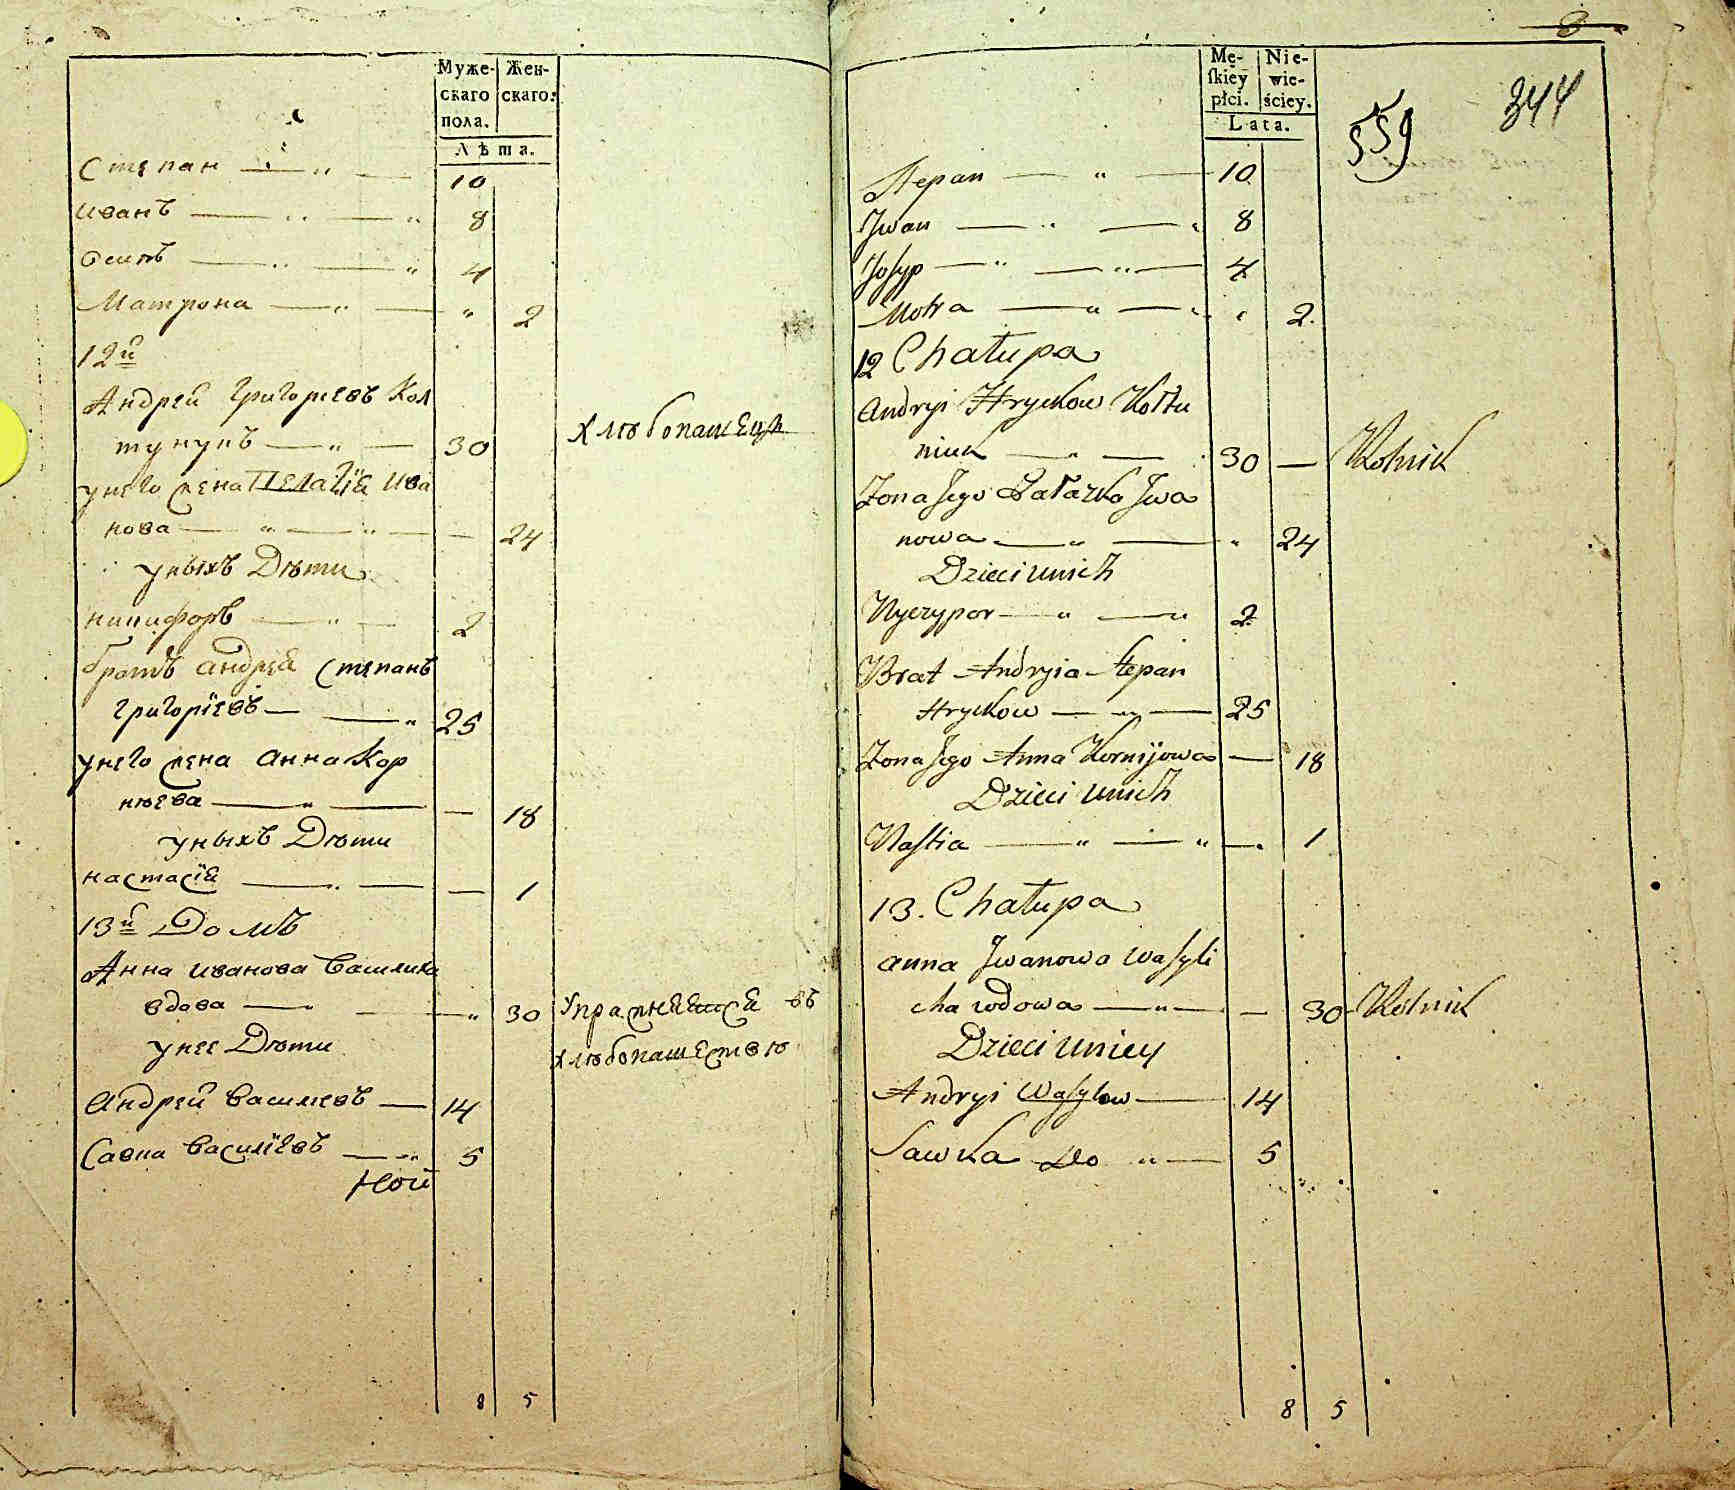 Муже- Жен-
скаго скаго.
пола.
Лѣта.
Степанъ — „ — 10
Иванъ — „ — „ 8
Осипъ — „ — „ 4
Матрона — „ — „ 2
12й
Андрей Григориевъ Кол
тунукъ — „ — 30 хлѣбопашецъ
унего жена Пелагія Ива
нова — „ — „ — — 24
уныхъ Дѣти
никифоръ — „ — 2
братъ андрея степанъ
григоріевъ — — „ 25
унего жена анна Кор
нѣева — „ — — 18
уныхъ Дѣти
настасія — „ — — 1
13й Домъ
Анна иванова василиха
вдова — „ — „ 30 упражняется въ
унее Дѣти хлѣбопашествѣ
андрей василиевъ — 14
Савка василіевъ — „ 5
8 5
8
Mę- Nie-
skiey wie-
płci. ściey.
Lata.
559
344
Stepan — „ — 10
Jwan — „ — „ 8
Josyp — „ — „ — 4
Motra — „ — „ „ 2.
12 Chałupa
Andryi Hryckow Kołtu
niuk — „ — 30 — Rolnik
Zona Jego Pałazka Jwa
nowa — „ — „ 24
Dzieci unich
Nyczypor — „ — „ 2
Brat Andryia Stepan
Hryckow — „ — 25
Zona Jego Anna Kornijowa — 18
Dzieci unich
Nastia — „ — „ — 1
13. Chałupa
anna Jwanowa Wasyli
cha wdowa — „ — — 30 Rolnik
Dzieci uniey
Andryi Wasylow — 14
Sawka do „ — 5
8 5